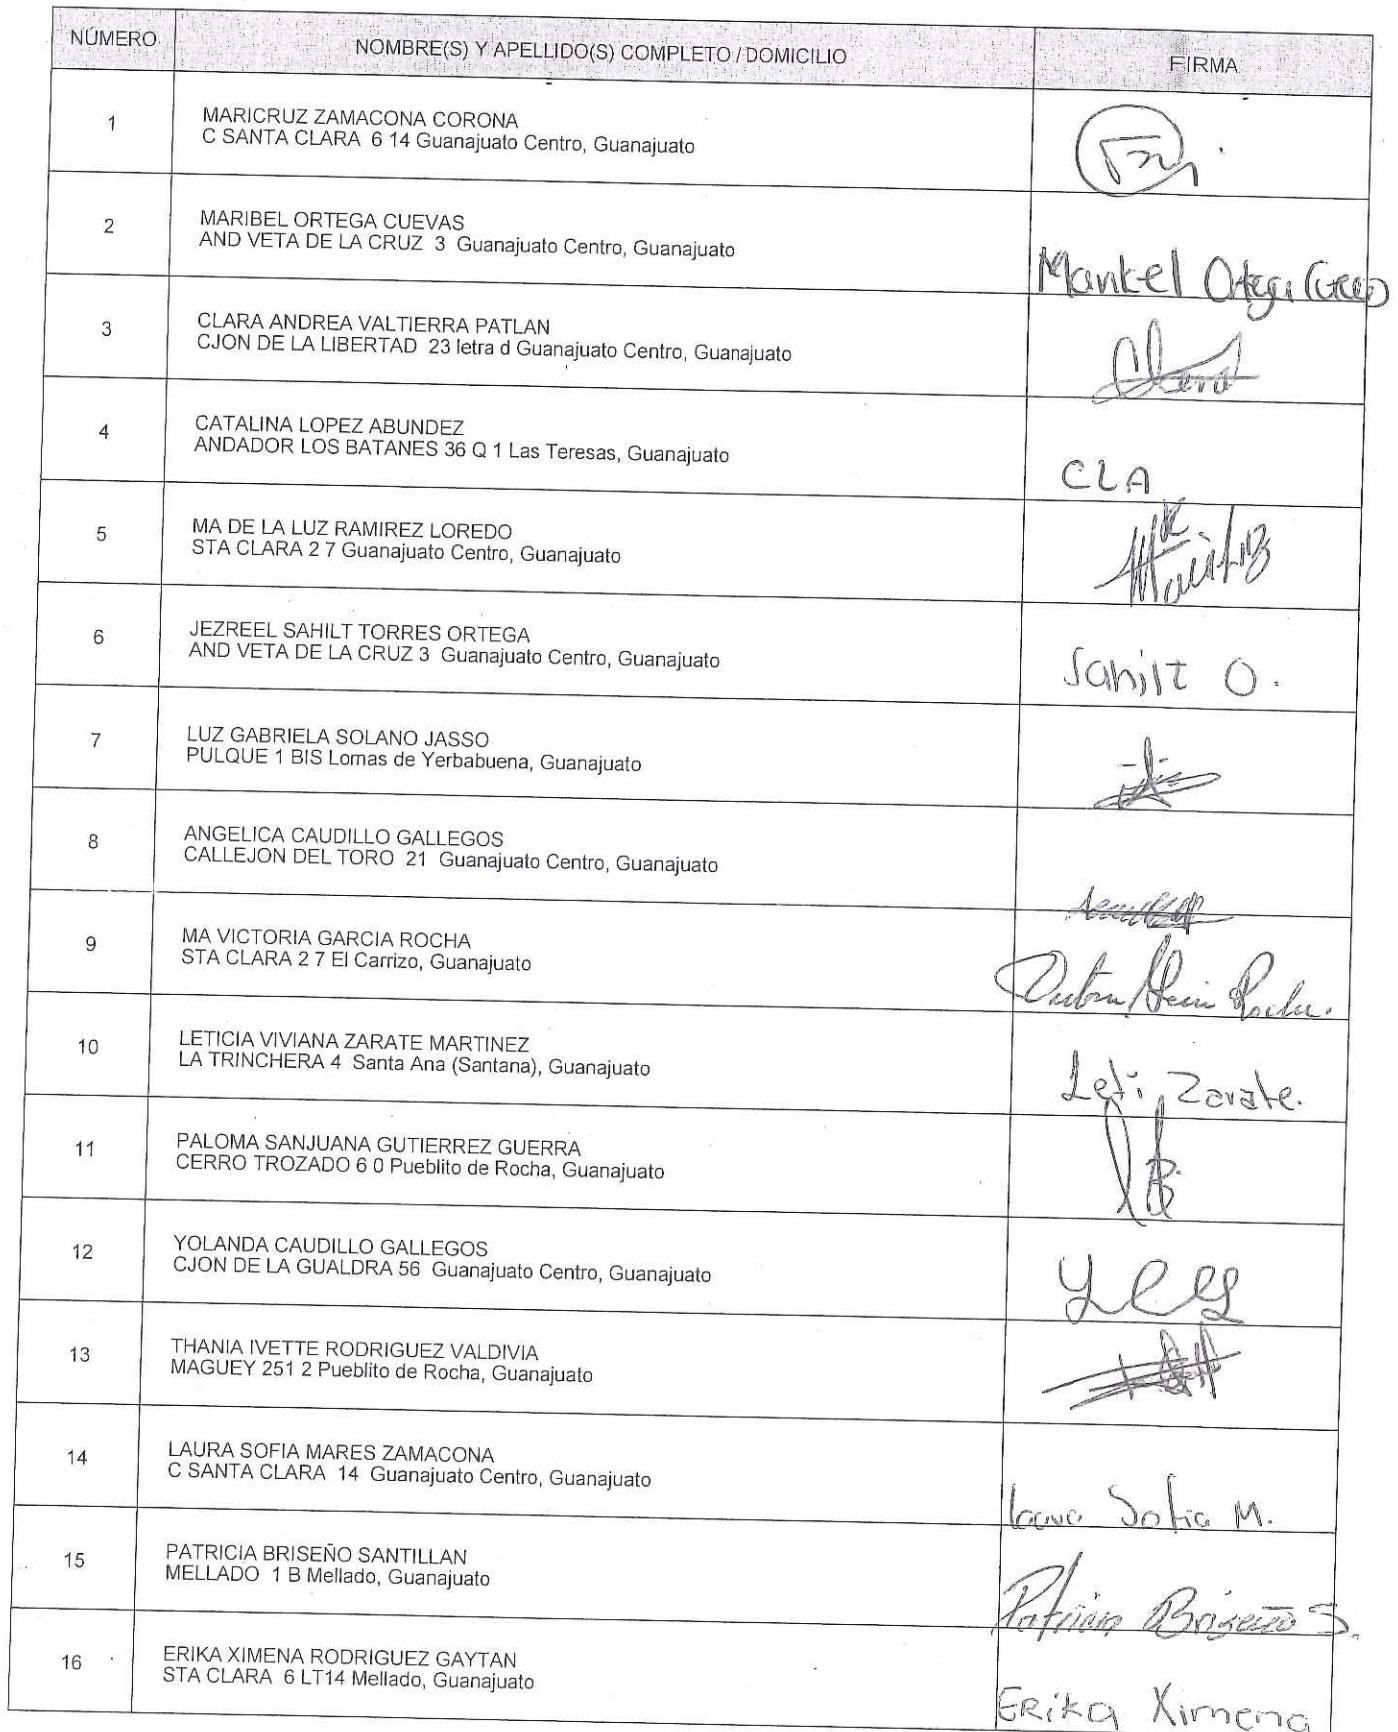 NÚMERO NOMBRE(S) Y APELLIDO(S) COMPLETO / DOMICILIO FIRMA
1 MARICRUZ ZAMACONA CORONA
C SANTA CLARA 6 14 Guanajuato Centro, Guanajuato
2 MARIBEL ORTEGA CUEVAS
AND VETA DE LA CRUZ 3 Guanajuato Centro, Guanajuato
Maribel Ortega
3 CLARA ANDREA VALTIERRA PATLAN
CJON DE LA LIBERTAD 23 letra d Guanajuato Centro, Guanajuato
4 CATALINA LOPEZ ABUNDEZ
ANDADOR LOS BATANES 36 Q 1 Las Teresas, Guanajuato
CLA
5 MA DE LA LUZ RAMIREZ LOREDO
STA CLARA 2 7 Guanajuato Centro, Guanajuato
6 JEZREEL SAHILT TORRES ORTEGA
AND VETA DE LA CRUZ 3 Guanajuato Centro, Guanajuato
Sahilt O.
7 LUZ GABRIELA SOLANO JASSO
PULQUE 1 BIS Lomas de Yerbabuena, Guanajuato
8 ANGELICA CAUDILLO GALLEGOS
CALLEJON DEL TORO 21 Guanajuato Centro, Guanajuato
9 MA VICTORIA GARCIA ROCHA
STA CLARA 2 7 El Carrizo, Guanajuato
10 LETICIA VIVIANA ZARATE MARTINEZ
LA TRINCHERA 4 Santa Ana (Santana), Guanajuato
Leti Zarate.
11 PALOMA SANJUANA GUTIERREZ GUERRA
CERRO TROZADO 6 0 Pueblito de Rocha, Guanajuato
12 YOLANDA CAUDILLO GALLEGOS
CJON DE LA GUALDRA 56 Guanajuato Centro, Guanajuato
13 THANIA IVETTE RODRIGUEZ VALDIVIA
MAGUEY 251 2 Pueblito de Rocha, Guanajuato
14 LAURA SOFIA MARES ZAMACONA
C SANTA CLARA 14 Guanajuato Centro, Guanajuato
Laura Sofia M.
15 PATRICIA BRISEÑO SANTILLAN
MELLADO 1 B Mellado, Guanajuato
Patricia Briseño S.
16 ERIKA XIMENA RODRIGUEZ GAYTAN
STA CLARA 6 LT14 Mellado, Guanajuato
Erika Ximena